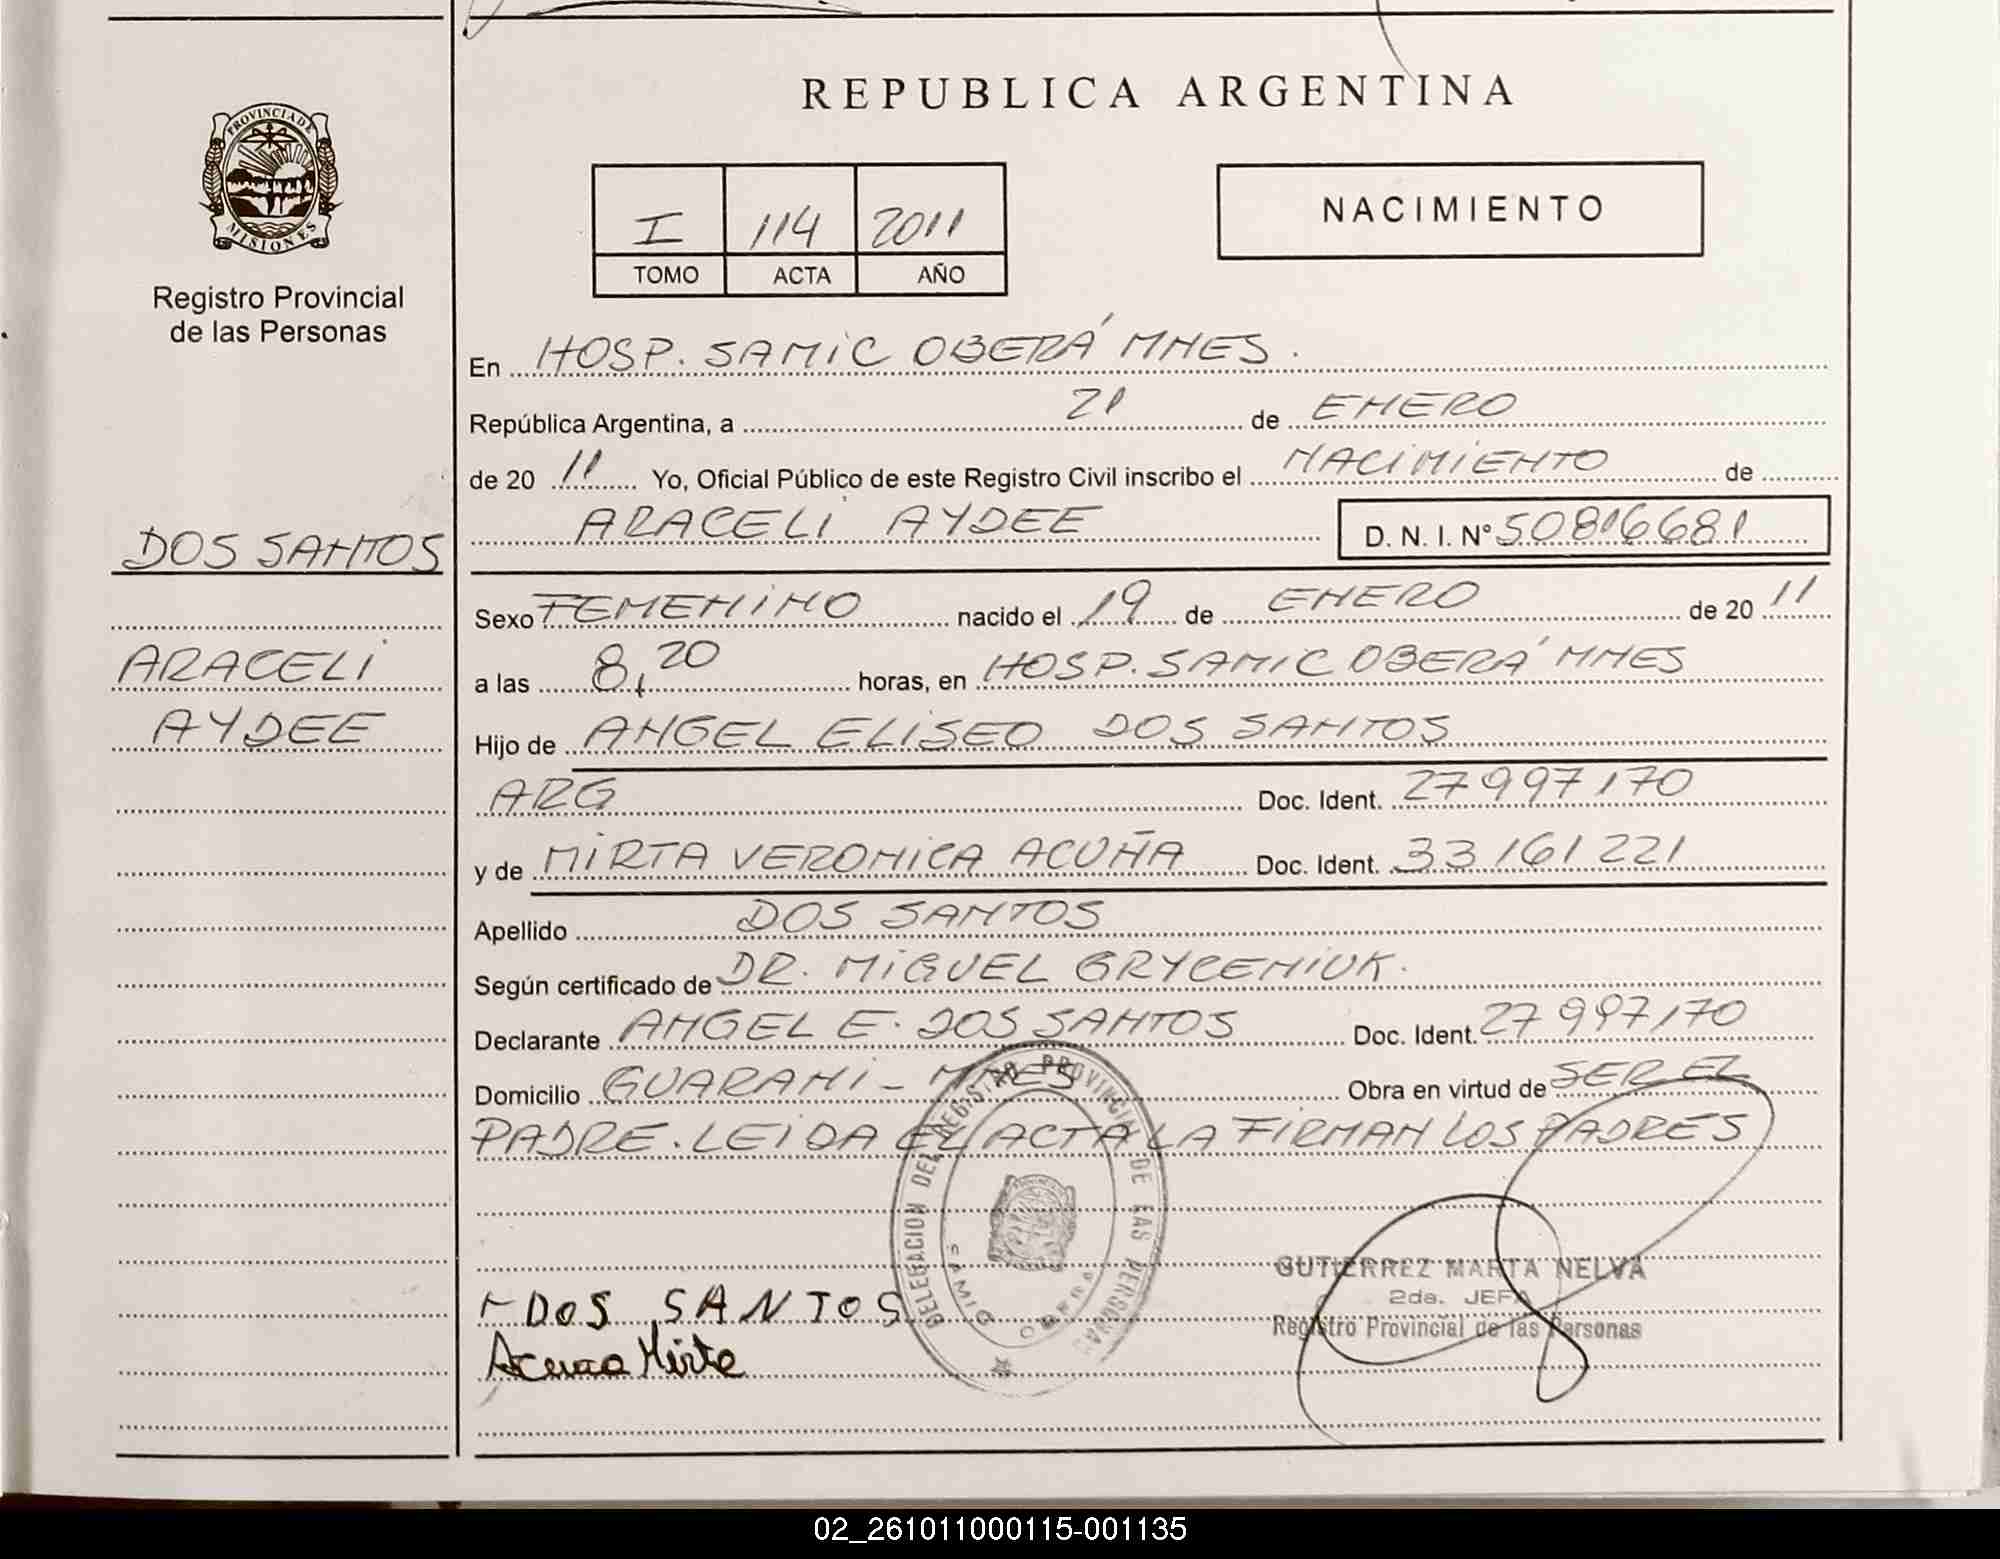 REPUBLICA ARGENTINA
PROVINCIA DE
MISIONES
Registro Provincial
de las Personas
I 114 2011
TOMO ACTA AÑO
NACIMIENTO
En HOSP. SAMIC OBERÁ MNES.
República Argentina, a 21 de ENERO
de 20 11 Yo, Oficial Público de este Registro Civil inscribo el NACIMIENTO de
ARACELI AYDEE D. N. I. N° 50816681
DOS SANTOS
ARACELI
AYDEE
Sexo FEMENINO nacido el 19 de ENERO de 20 11
a las 8,20 horas, en HOSP. SAMIC OBERÁ MNES
Hijo de ANGEL ELISEO DOS SANTOS
ARG Doc. Ident. 27997170
y de MIRTA VERONICA ACUÑA Doc. Ident. 33161221
Apellido DOS SANTOS
Según certificado de DR. MIGUEL GRYCENIUK.
Declarante ANGEL E. DOS SANTOS Doc. Ident. 27997170
Domicilio GUARANI - MNES Obra en virtud de SER EL
PADRE. LEIDA EL ACTA LA FIRMAN LOS PADRES
DELEGACION DEL REGISTRO PROVINCIAL DE LAS PERSONAS
SAMIC OBERA
DOS SANTOS
Acuña Mirta
GUTIERREZ MARTA NELVA
2da. JEFA
Registro Provincial de las Personas
02_261011000115-001135